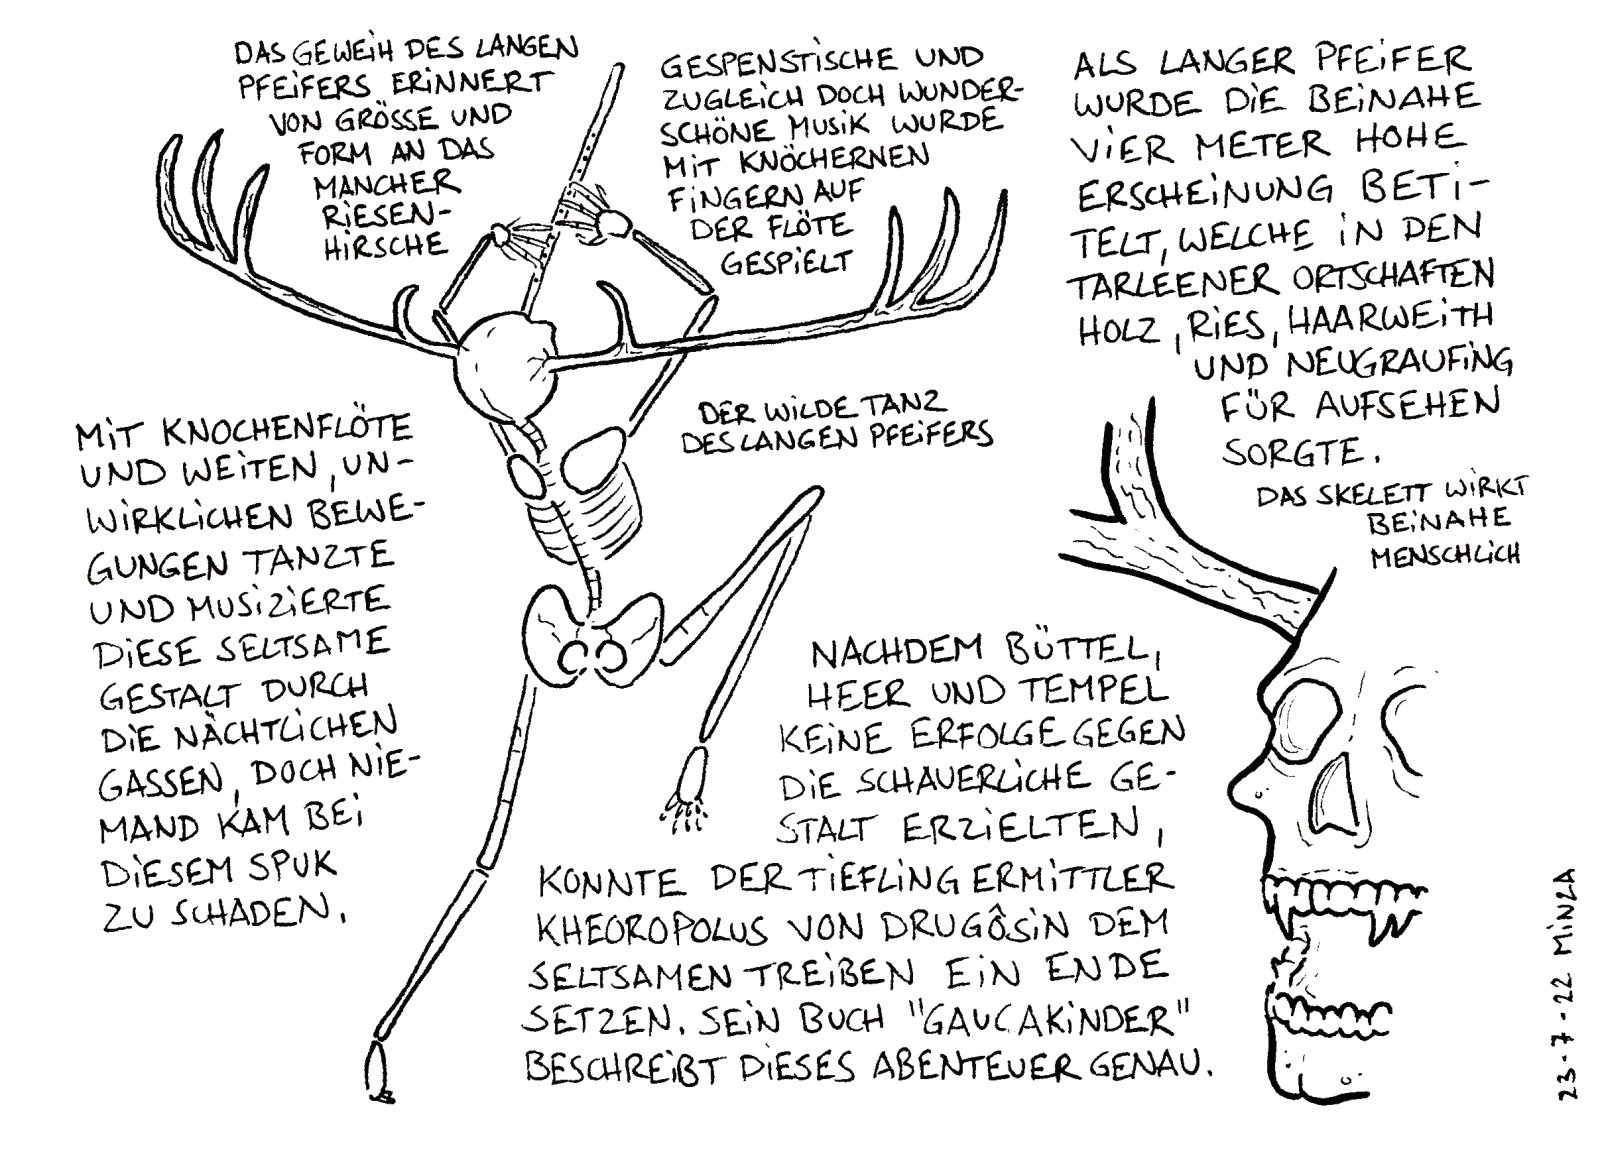 DAS GEWEIH DES LANGEN
PFEIFERS ERINNERT
VON GRÖSSE UND
FORM AN DAS
MANCHER
RIESEN-
HIRSCHE
GESPENSTISCHE UND
ZUGLEICH DOCH WUNDER-
SCHÖNE MUSIK WURDE
MIT KNÖCHERNEN
FINGERN AUF
DER FLÖTE
GESPIELT
ALS LANGER PFEIFER
WURDE DIE BEINAHE
VIER METER HOHE
ERSCHEINUNG BETI-
TELT, WELCHE IN DEN
TARLEENER ORTSCHAFTEN
HOLZ, RIES, HAARWEITH
UND NEUGRAUFING
FÜR AUFSEHEN
SORGTE.
DER WILDE TANZ
DES LANGEN PFEIFERS
DAS SKELETT WIRKT
BEINAHE
MENSCHLICH
MIT KNOCHENFLÖTE
UND WEITEN, UN-
WIRKLICHEN BEWE-
GUNGEN TANZTE
UND MUSIZIERTE
DIESE SELTSAME
GESTALT DURCH
DIE NÄCHTLICHEN
GASSEN, DOCH NIE-
MAND KAM BEI
DIESEM SPUK
ZU SCHADEN.
NACHDEM BÜTTEL,
HEER UND TEMPEL
KEINE ERFOLGE GEGEN
DIE SCHAUERLICHE GE-
STALT ERZIELTEN,
KONNTE DER TIEFLING ERMITTLER
KHEOROPOLUS VON DRUGÔSIN DEM
SELTSAMEN TREIBEN EIN ENDE
SETZEN. SEIN BUCH "GAUCAKINDER"
BESCHREIBT DIESES ABENTEUER GENAU.
23-7-22 MINZA